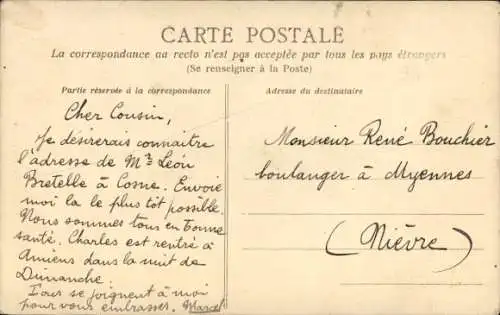 CARTE POSTALE
La correspondance au recto n'est pas acceptée par tous les pays étrangers
(Se renseigner à la Poste)
Partie réservée à la correspondance
Cher Cousin,
Je désirerais connaitre
l'adresse de Mr Léon
Bretelle à Cosne. Envoie
moi la le plus tôt possible.
Nous sommes tous en bonne
santé. Charles est rentré à
Amiens dans la nuit de
Dimanche.
Tous se joignent à moi
pour vous embrasser. Marcel
Adresse du destinataire
Monsieur René Bouchier
boulanger à Myennes
(Nièvre)